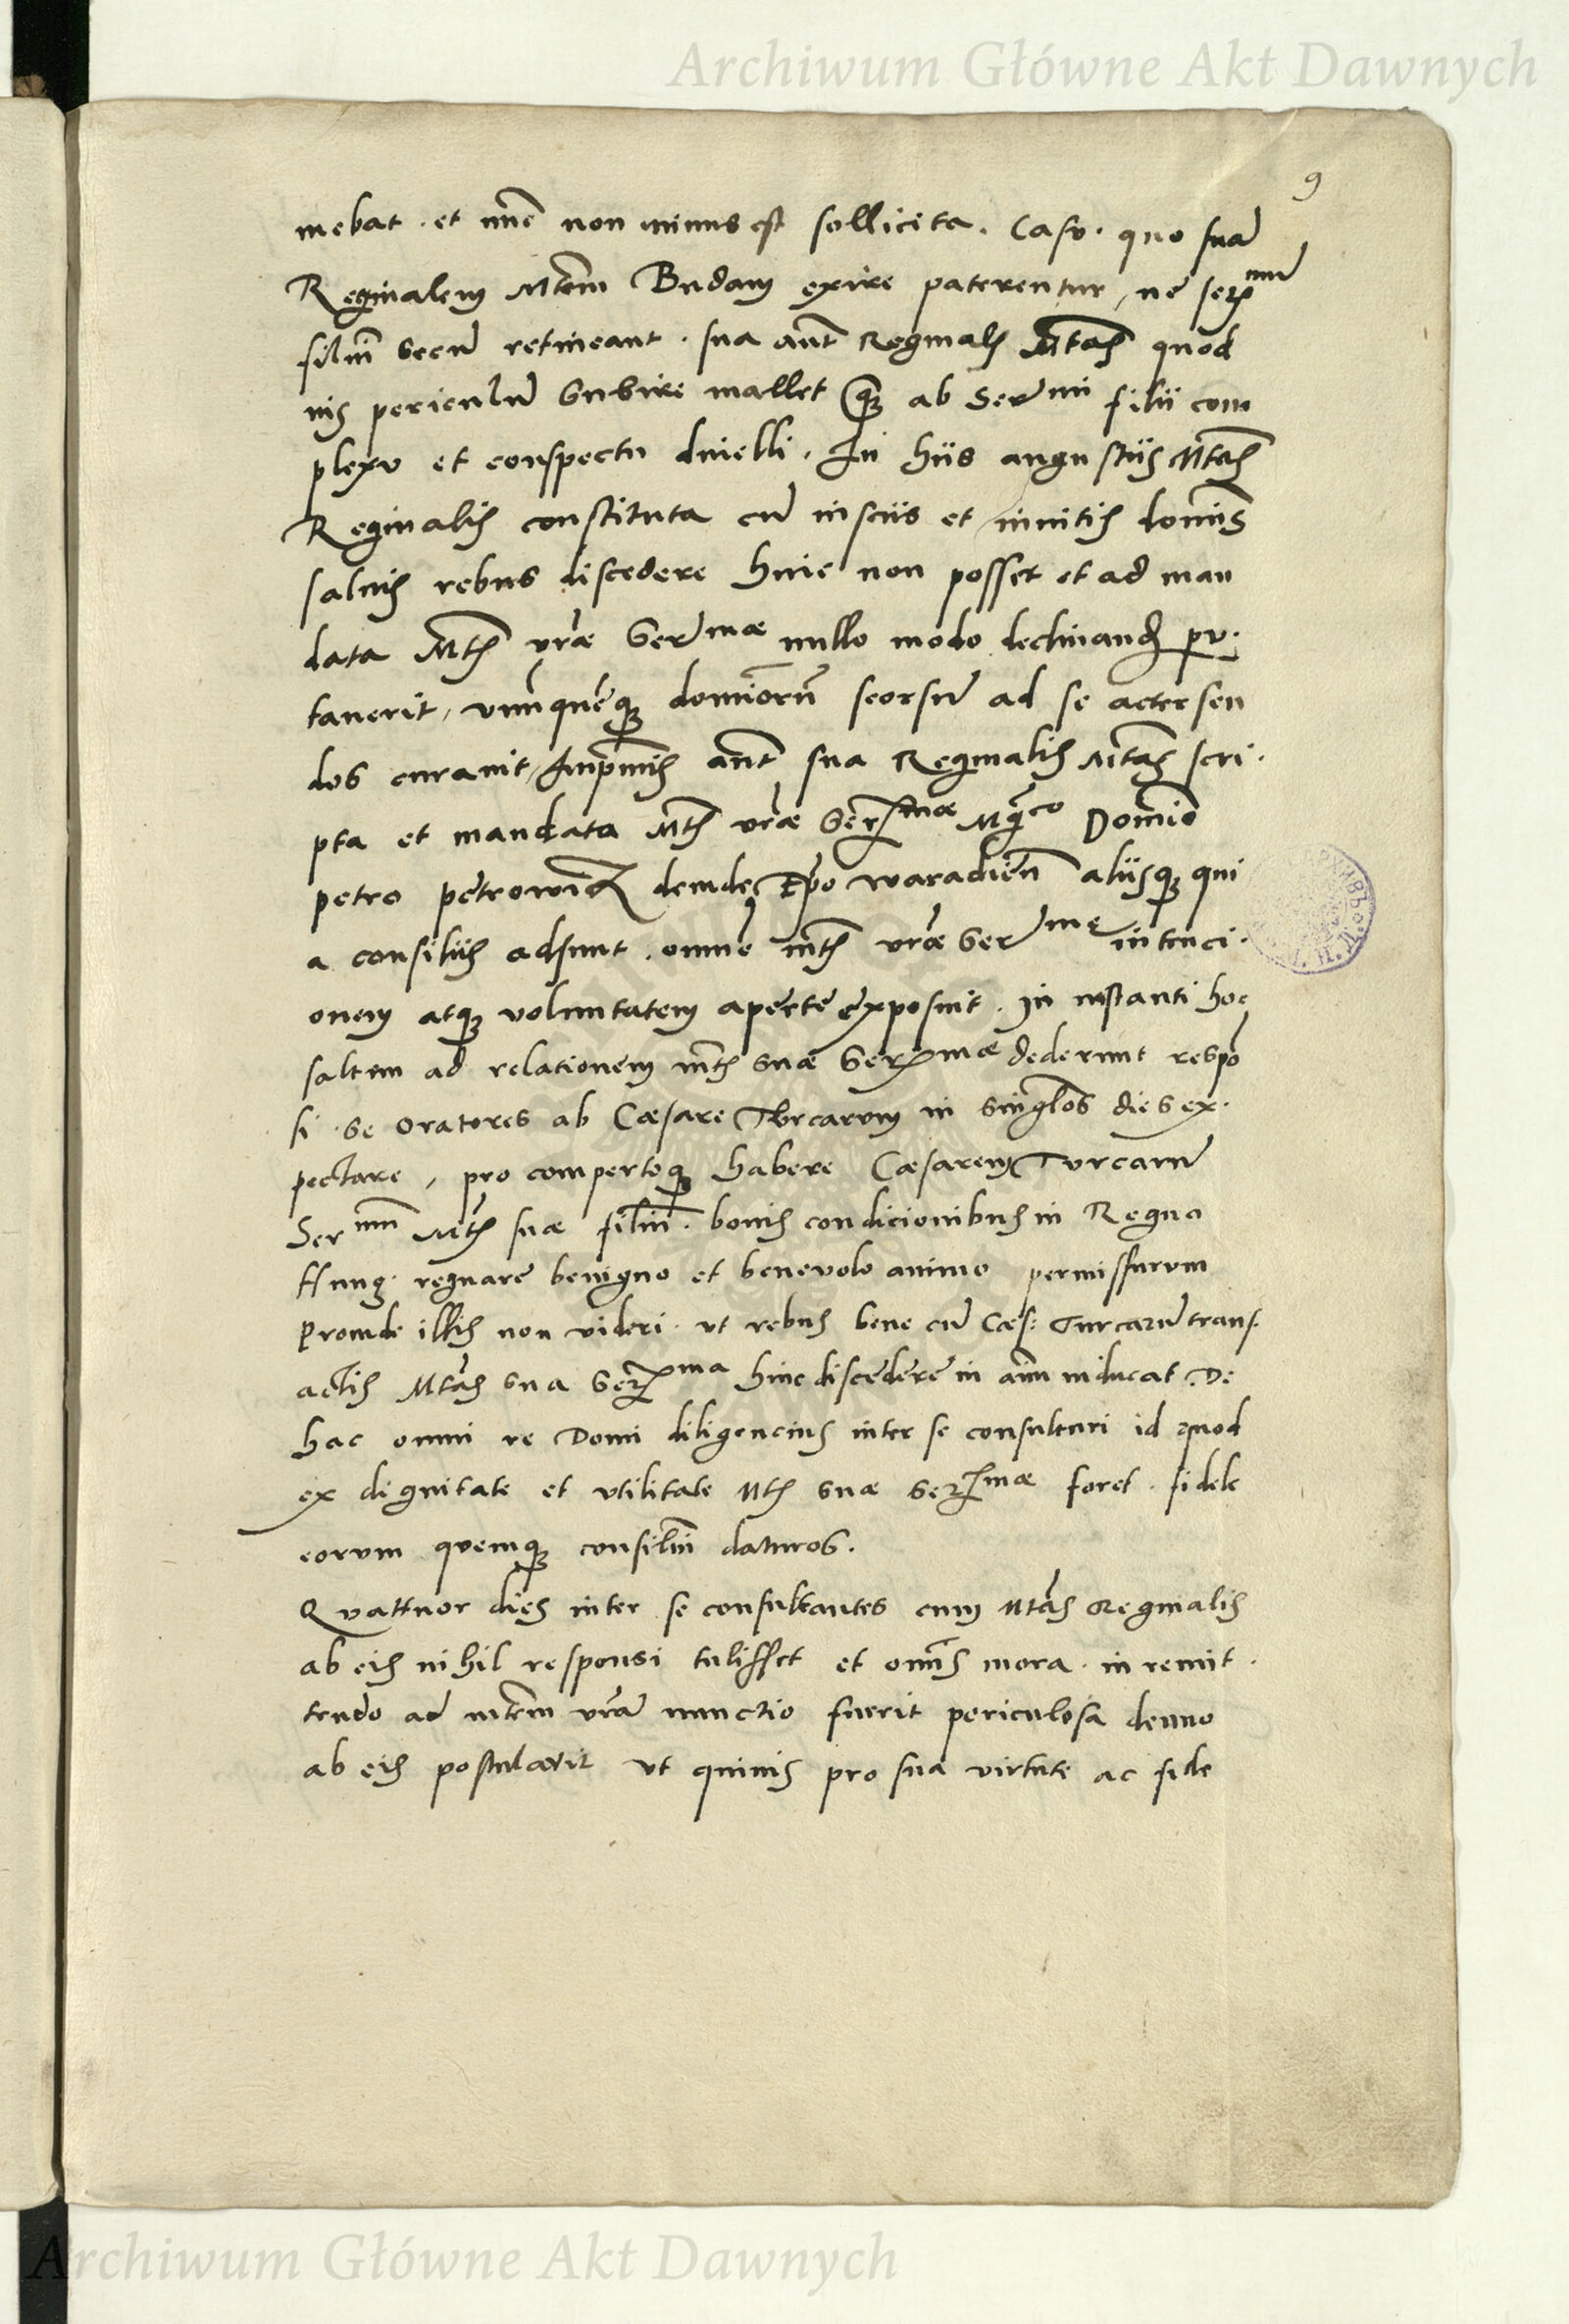 Archiwum Główne Akt Dawnych
9
mebat. et nunc non minus est sollicita. Casu. quo suā
Reginalem Mtem Budam exire paterentur, ne serᵐᵘ̄
filiū secū retineant. sua aūt Reginalis Mtas quod
vis periculū subire mallet quā ab Serᵐⁱ filii com
plexu et conspectu divelli. In hiis angustiis Mtas
Reginalis constituta cū insciis et invitis dominis
salvis rebus discedere huic non posset et ad man
data Mtis vrae Serᵐᵃᵉ nullo modo declinandū pu.
taverit, vnūquēqȝ dominorū seorsū ad se accersen
dos curavit, Inprimis aūt sua Reginalis Mtas scri.
pta et mandata Mtis vrae Serᵐᵃᵉ Mgᶜᵒ Domīo
petro petrowicz deinde Epo waradien̄ aliisqȝ qui
a consiliis adsunt. omnē mtis vrae Serᵐᵉ intenci.
onem atqȝ voluntatem aperte exposuit. In instanti hoc
saltem ad relationem mtis suae Serᵐᵃᵉ dederunt respō
si. se Oratores ab Caesare Turcarum in singlos dies ex.
pectare, pro compertoqȝ habere Caesarem Turcarū
Serᵐᵘᵐ Mtis suae filiū. bonis condicionibus in Regno
Hung. regnare benigno et benevolo animo permissurum
Proinde illis non videri. vt rebus bene cū Caes: Turcarū trans.
actis Mtas sua Serᵐᵃ hinc discedere in aīm inducat. De
hac omni re Domi diligencius inter se consultari id quod
ex dignitate et vtilitate Mtis suae Serᵐᵃᵉ foret. fidele
eorum quemqȝ consiliū daturos.
Quattuor dies inter se consultantes cum Mtas Reginalis
ab eis nihil responsi tulisset et omnis mora. in remit.
tendo ad mtem vrā nunctio fuerit periculosa denuo
ab eis postulavit vt quivis pro sua virtute ac fide
Archiwum Główne Akt Dawnych